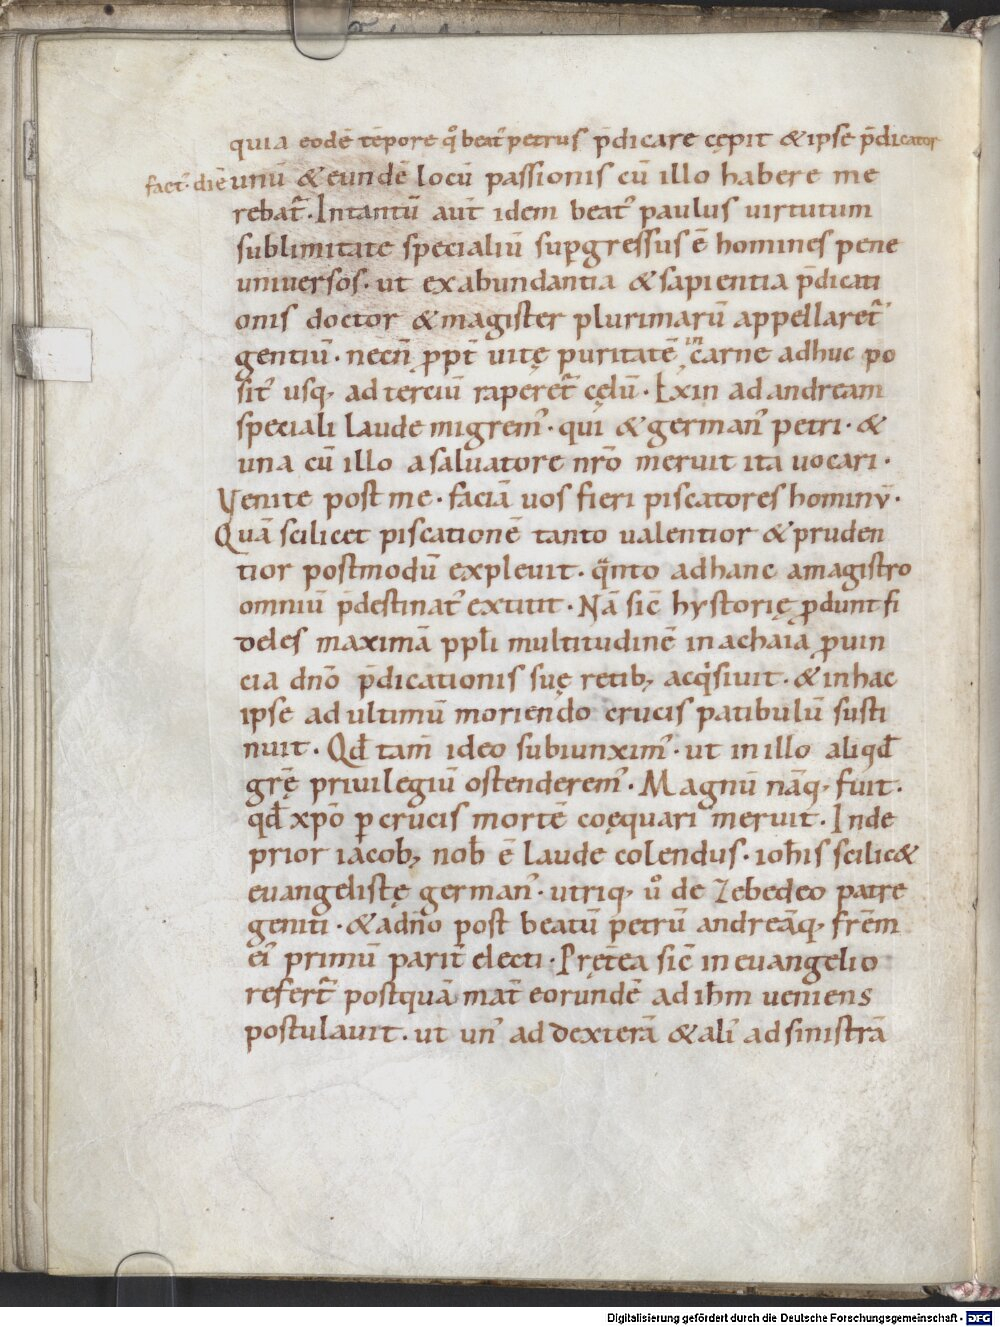 quia eodē tēpore q̊ beat᷒ petrus p̄dicare cępit & ipse p̄dicator
fact᷒ . diē unū & eundē locū passionis cū illo habere me
rebat᷑ . Intantū aut̄ idem beat᷒ paulus uirtutum
sublimitate specialiū sup̱gressus ē homines pene
uniuersos . ut exabundantia & sapientia p̄dicati
onis doctor & magister plurimarū appellaret᷑
gentiū . necn̄ ꝓpt̄ uitę puritatē in carne adhuc po
sit᷒ usq; ad terciū raperet᷑ cęlū . Exin ad andream
speciali laude migrem᷒ . qui & german᷒ petri . &
una cū illo a saluatore nr̄o meruit ita uocari .
Venite post me . faciā uos fieri piscatores hominū .
Quā scilicet piscationē tanto ualentior & pruden
tior postmodū expleuit . qͣnto adhanc amagistro
omniū p̄destinat᷒ extitit . Nā sic̄ hystorię ꝓdunt fi
deles maximā ppl̄i multitudinē in achaia ꝓuin
cia dn̄o p̄dicationis suę retib; acqͥsiuit . & inhac
ipse ad ultimū moriendo crucis patibulū susti
nuit . Qd̄ tam̄ ideo subiunxim᷒ . ut in illo aliqd̄
grę̄ priuilegiū ostenderem᷒ . Magnū nāq; fuit .
qd̄ xp̄o ꝑ crucis mortē coęquari meruit . Inde
prior iacob; nob̄ ē laude colendus . ioh̄is scilic&
euangelistę german᷒ . utriq; ů de Zebedeo patre
geniti . & adn̄o post beatū petrū andreāq; fr̄em
ei᷒ primū parit̄ electi . Pręt̄ea sic̄ in euangelio
refert᷑ postquā mat̄ eorundē ad ih̄m ueniens
postulauit . ut un᷒ ad dexterā & ali᷒ ad sinistrā
Digitalisierung gefördert durch die Deutsche Forschungsgemeinschaft - DFG